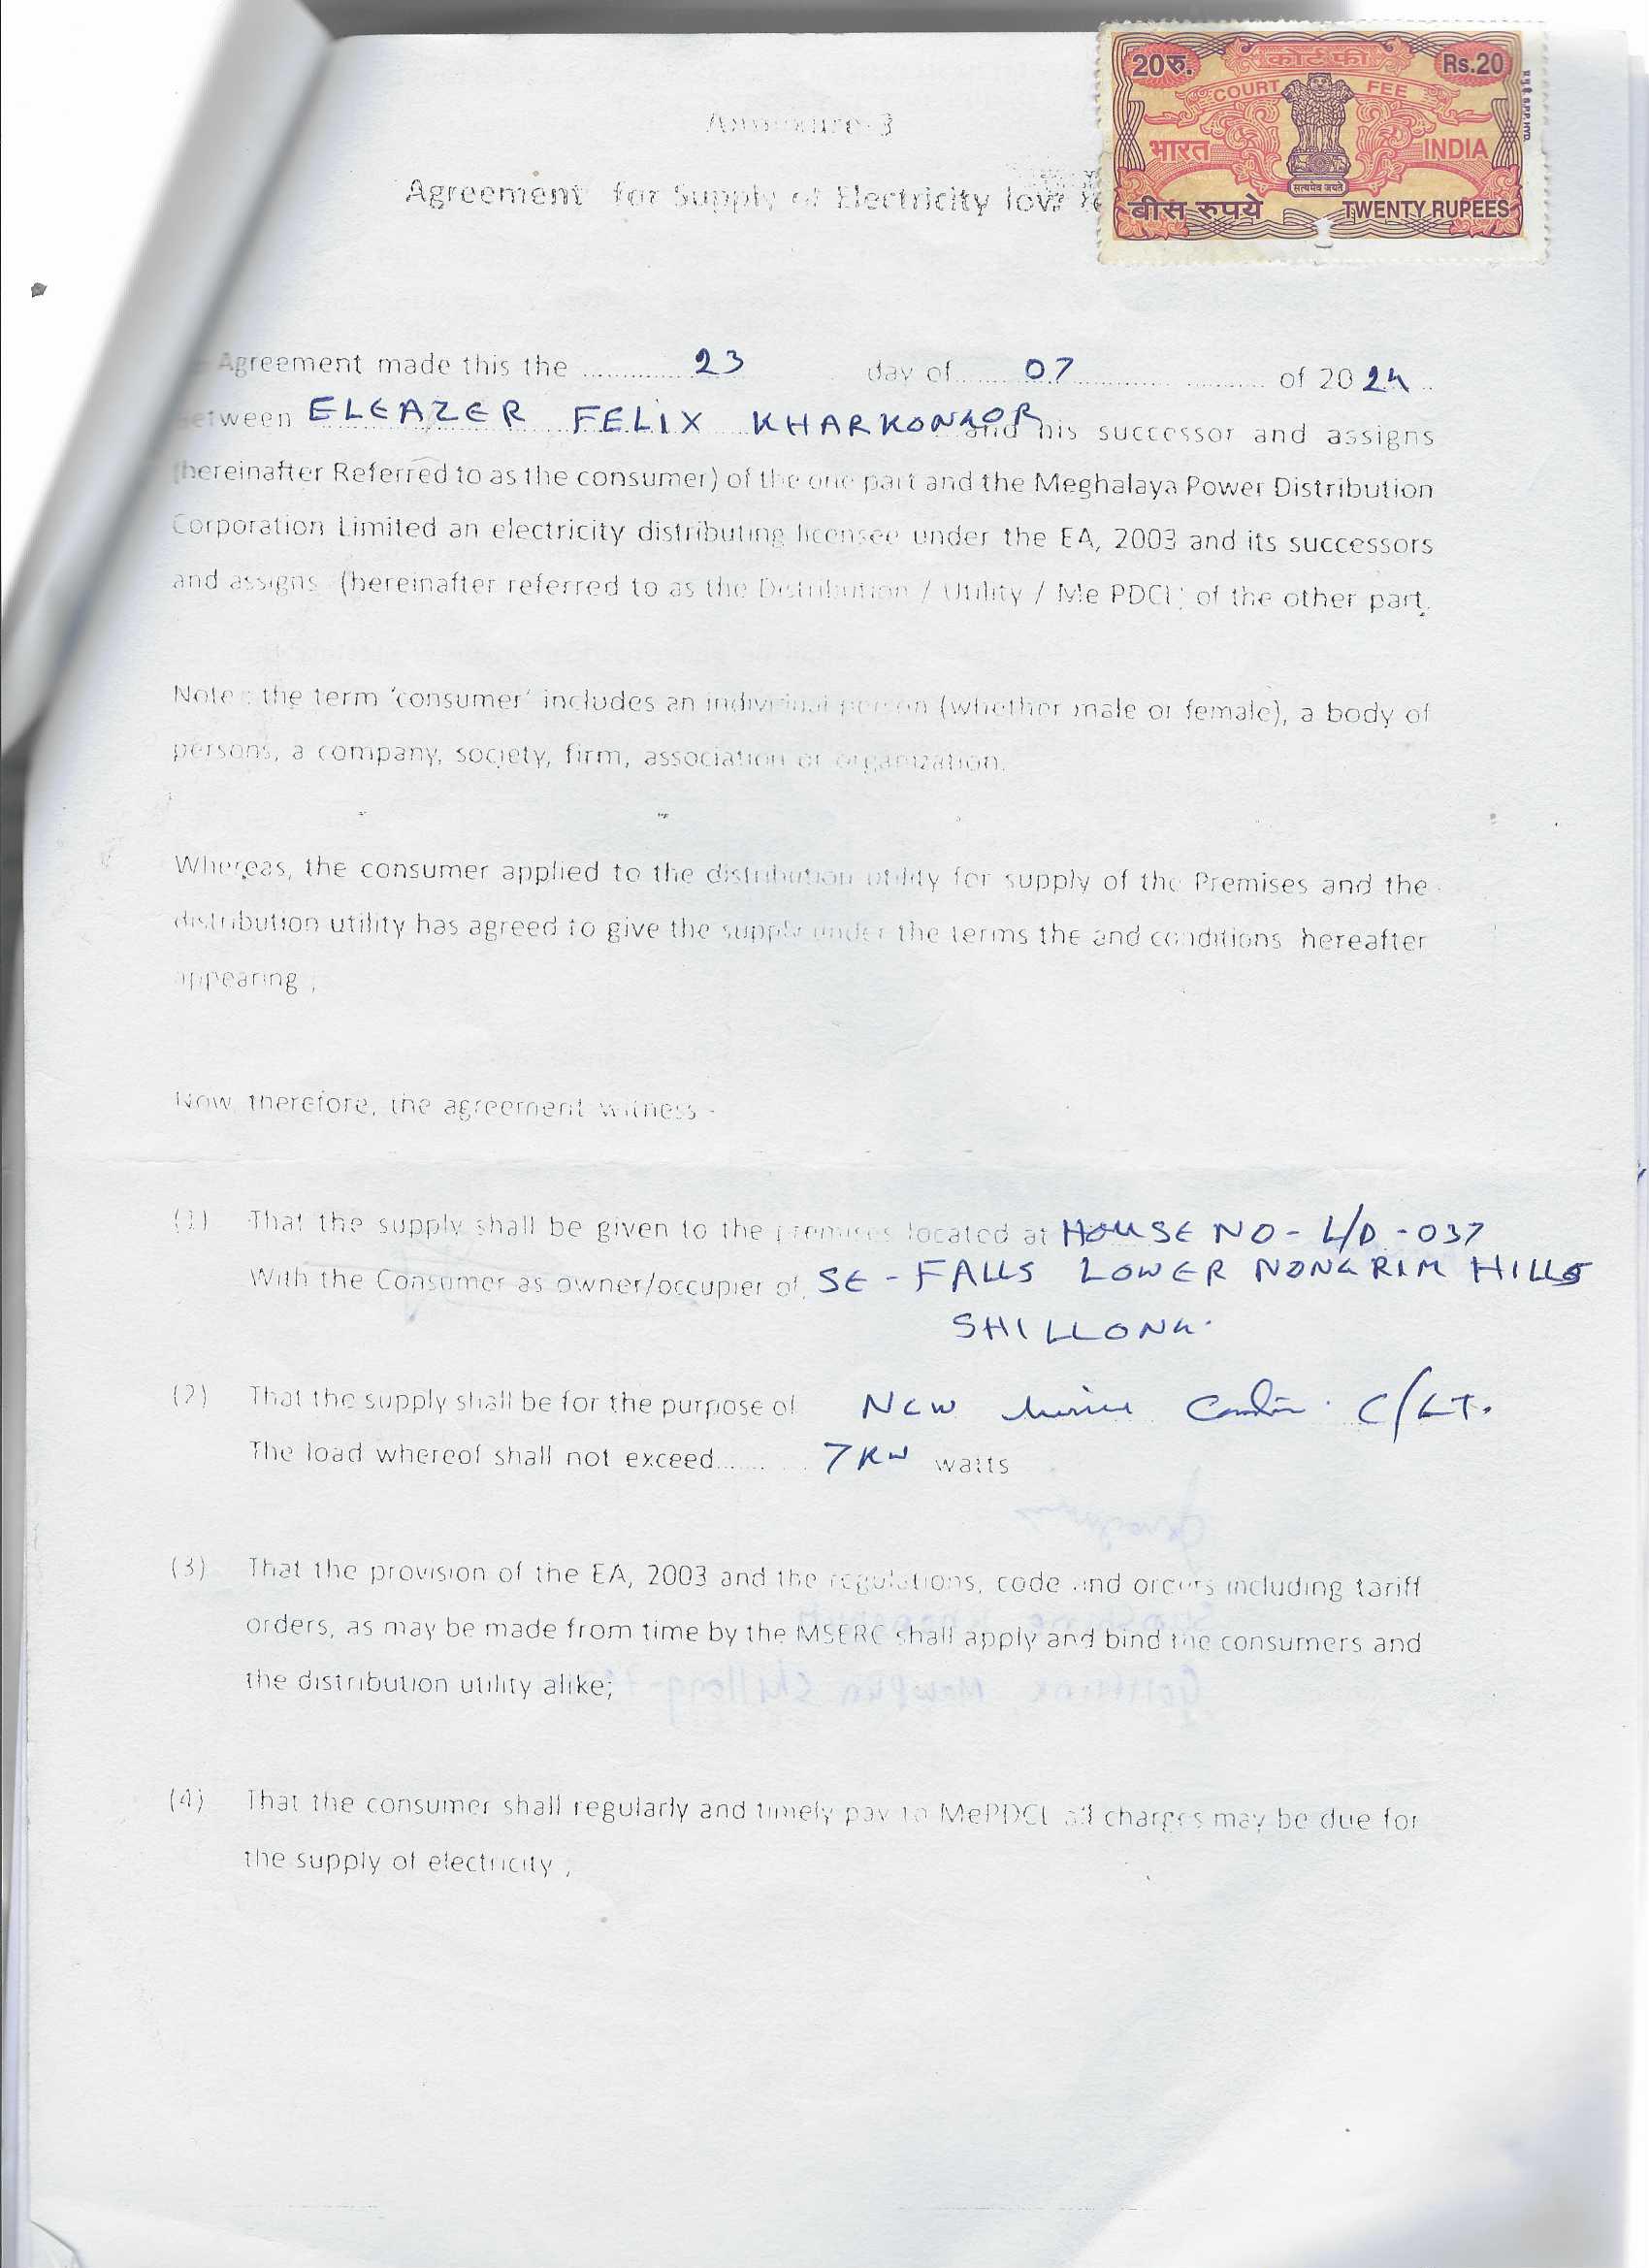 20रु. कोर्ट फी Rs.20
COURT FEE
भारत INDIA
सत्यमेव जयते
बीस रुपये TWENTY RUPEES
Annexure-3
Agreement for Supply of Electricity low
Agreement made this the ............ 23 day of....... 07 ........................ of 20 24 ..
Between ELEAZER FELIX KHARKONGOR and his successor and assigns
(hereinafter Referred to as the consumer) of the one part and the Meghalaya Power Distribution
Corporation Limited an electricity distributing licensee under the EA, 2003 and its successors
and assigns (hereinafter referred to as the Distribution / Utility / Me PDCL; of the other part.
Note : the term 'consumer' includes an individual person (whether male or female), a body of
persons, a company, society, firm, association or organization.
Whereas, the consumer applied to the distribution utility for supply of the Premises and the
distribution utility has agreed to give the supply under the terms the and conditions hereafter
appearing ;
Now therefore, the agreement witness -
(1) That the supply shall be given to the premises located at HOUSE NO - L/D - 037
With the Consumer as owner/occupier of, SE - FALLS LOWER NONGRIM HILLS
SHILLONG.
(2) That the supply shall be for the purpose of New C/LT.
The load whereof shall not exceed....... 7 KW watts
(3) That the provision of the EA, 2003 and the regulations, code and orders including tariff
orders, as may be made from time by the MSERC shall apply and bind the consumers and
the distribution utility alike;
(4) That the consumer shall regularly and timely pay to MePDCL all charges may be due for
the supply of electricity ;